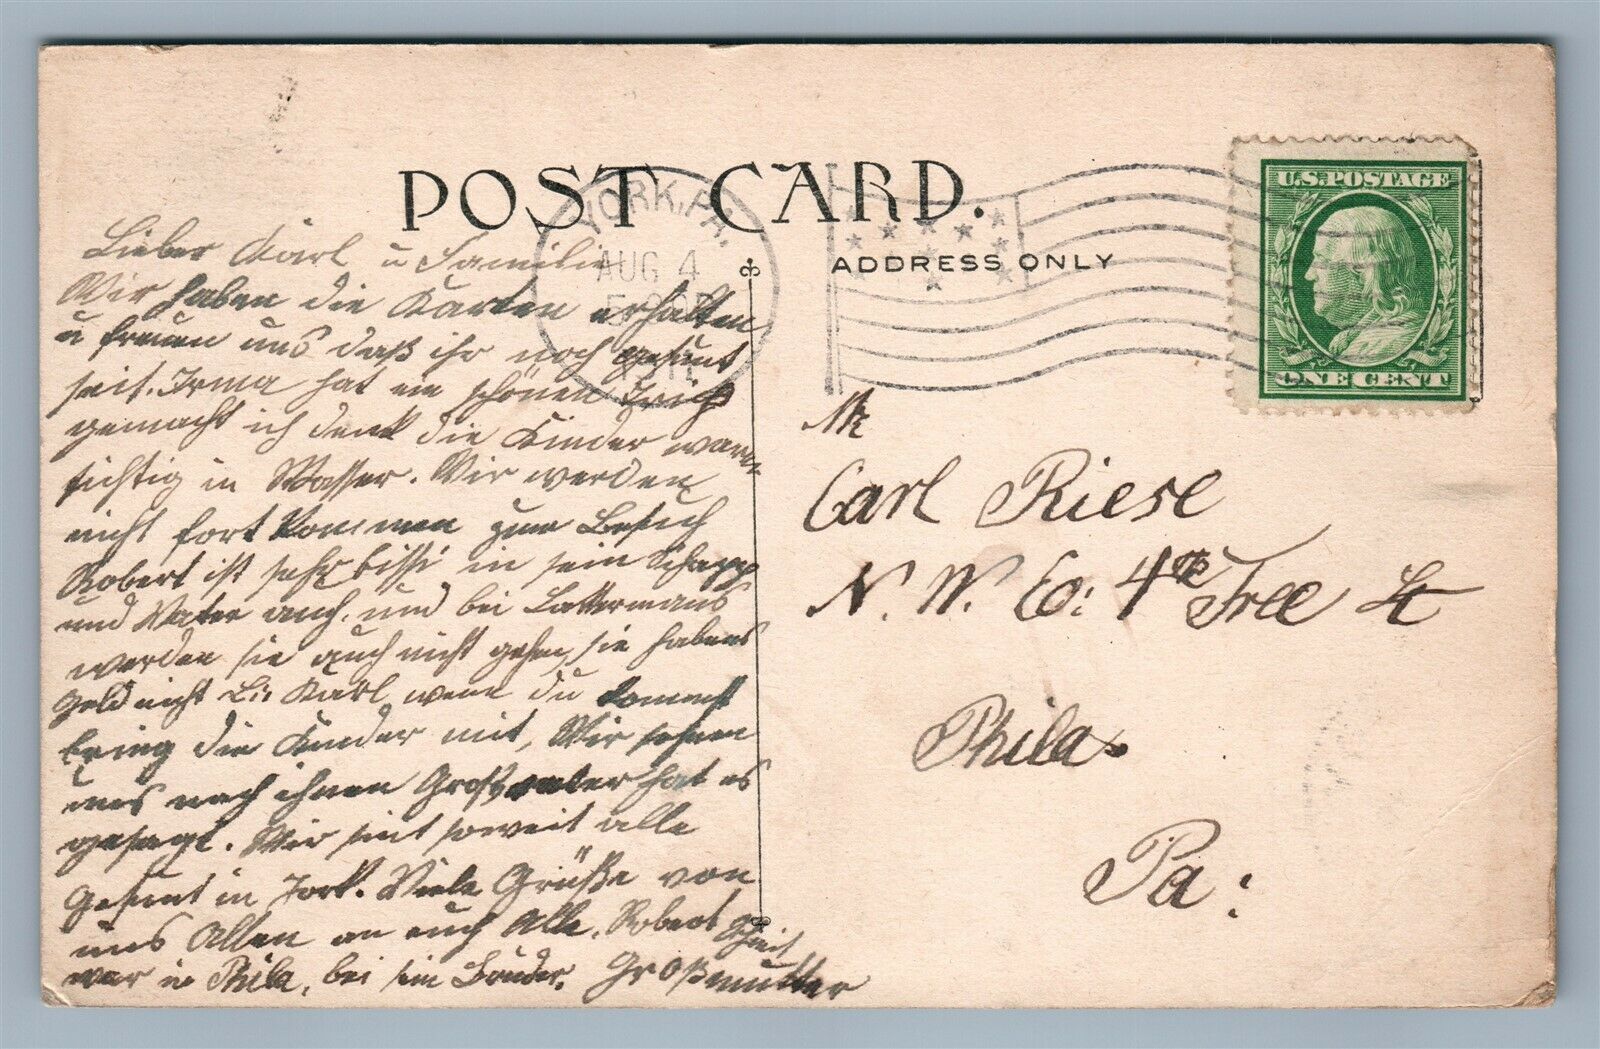 POST CARD.
ADDRESS ONLY
YORK, PA.
AUG 4
U.S. POSTAGE
ONE CENT
Lieber Karl u Familie
Wir haben die Karten erhalten
u freuen uns daß ihr noch gesunt
seit. Irma hat ein schönen
gemacht ich denk die Kinder waren
sichtig in Wasser. Wir werden
nicht fort kommen zum Besuch
Robert ist sehr bissi in sein Schapp
und Vater auch, und bei Lattermans
werden sie auch nicht gehen, sie habens
Geld nicht Li: Karl, wenn du kommest
bring die Kinder mit, Wir sehnen
uns nach ihnen Großvater hat es
gesagt. Wir sint soweit alle
Gesunt in York. Viele Grüße von
uns Allen an euch Alle. Robert
war in Phila, bei sein Bruder. Großmutter
Mr
Carl Riese
N. W. Co: 4th Tree St
Phila.
Pa: